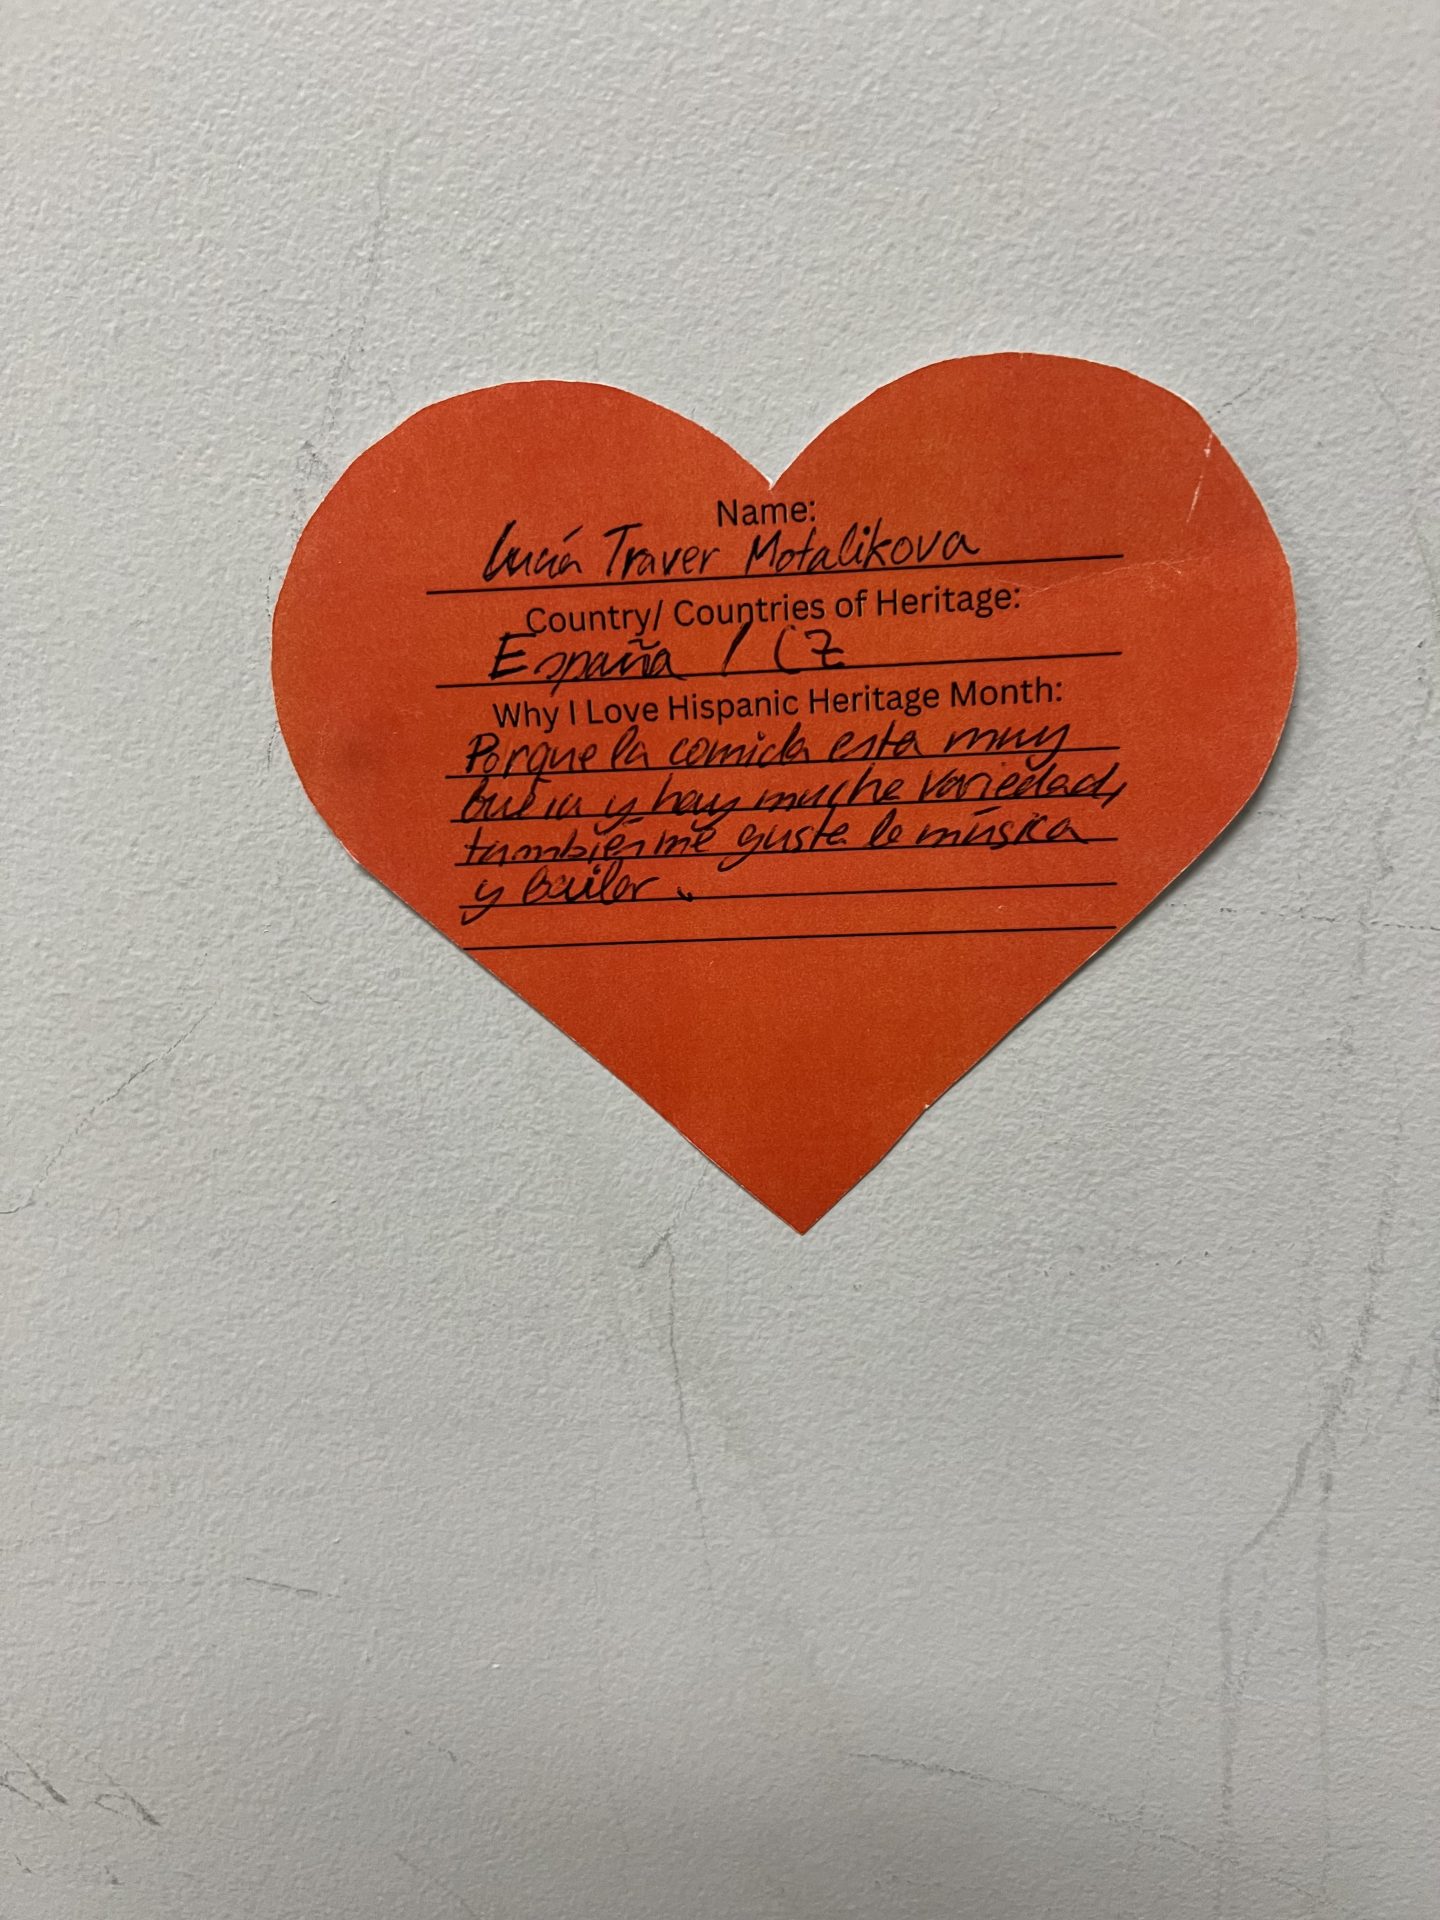 Name:
Lucía Traver Motalikova
Country/ Countries of Heritage:
España / CZ
Why I Love Hispanic Heritage Month:
Porque la comida esta muy
buena y hay mucha variedad,
también me gusta la música
y bailar.